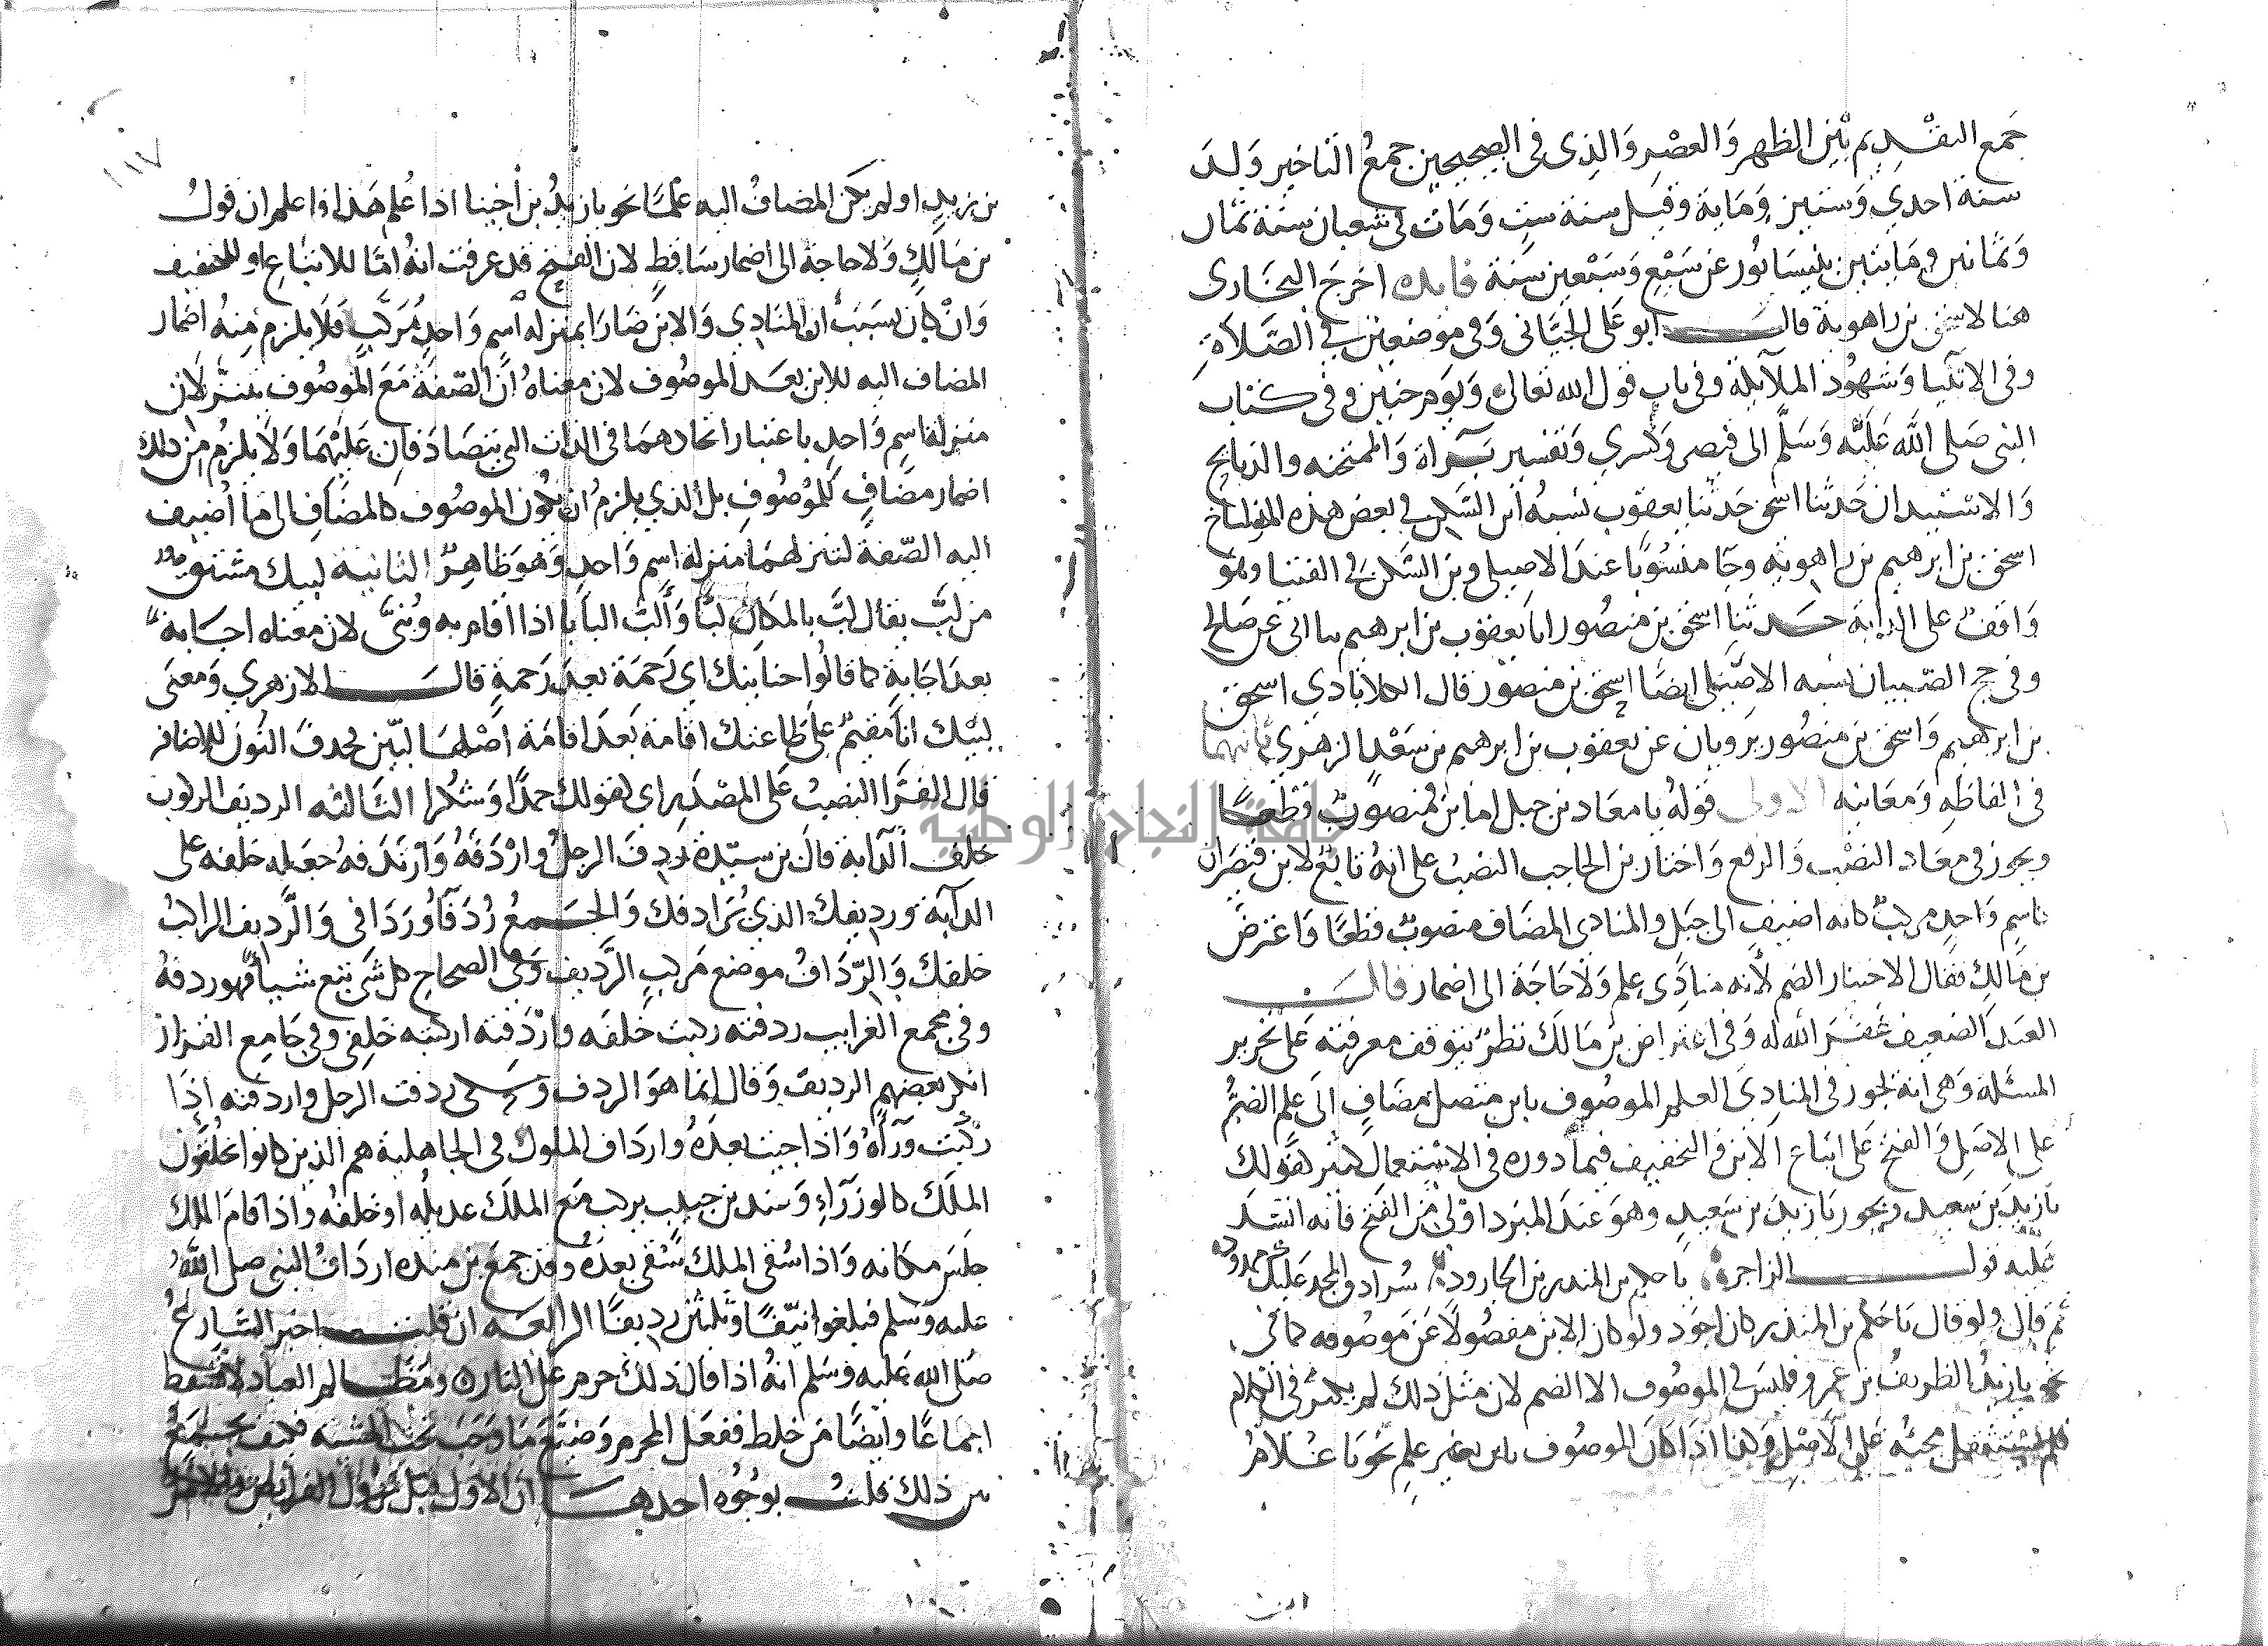 جمع التقديم بين الظهر والعصر والذي في الصحيحين جمع التاخير ولد
سنة احدي وستين وماية وقيل سنة ست ومات في شعبان سنة ثمان
وثمانين ومايتين بنيسابور عن سبع وسبعين سنة فايدة اخرج البخاري
هنا لاسحق بن راهوية قال ابو علي الجياني وفي موضعين في الصلاة
وفي الانبيا وشهود الملايكة وفي باب قول الله تعالى ويوم حنين وفي كتاب
النبي صلى الله عليه وسلم الى قيصر وكسري وتفسير براة والممتحنه والذبايح
والاستيذان حدثنا اسحق حدثنا يعقوب نسبه ابن السكن في بعض هذه المواضع
اسحق بن ابرهيم بن راهويه وجا منسوبا عند الاصيلي وبن السكن في الفتيا وهو
واقف على الدابة حدثنا اسحق بن منصور انا يعقوب بن ابرهيم نا ابي عن صالح
وفي حج الصبيان نسبه الاصيلي ايضا اسحق بن منصور قال الكلاباذي اسحق
بن ابرهيم واسحق بن منصور يرويان عن يعقوب بن ابرهيم بن سعد الزهري ثانيها
في الفاظه ومعانيه الاولى قوله يا معاذ بن جبل اما بن فمنصوب قطعا
ويجوز في معاذ النصب والرفع واختار بن الحاجب النصب على انه تابع لابن فيصران
كاسم واحد مركب كانه اضيف الى جبل والمنادى المضاف منصوب قطعا فاعترض
بن مالك فقال الاختيار الضم لانه منادى علم ولا حاجة الى اضمار قال
العبد الضعيف غفر الله له وفي اعتراض بن مالك نظر يتوقف معرفته على تحرير
المسئلة وهي انه يجوز في المنادى العلم الموصوف بابن متصل مضاف الى علم الضم
على الاصل والفتح على اتباع الابن والتخفيف فيما دوره في الاستعمال كثير كقولك
يا زيد بن سعيد ويجوز يا زيد بن سعيد وهو عند المبرد اولى من الفتح فانه انشد
عليه قول الراجز يا حكم بن المنذر بن الجارود سرادق المجد عليك ممدود
ثم قال ولو قال يا حكم بن المنذر كان اجود ولو كان الابن مفصولا عن موصوفه كما في
نحو يا زيد الظريف بن عمرو فليس في الموصوف الا الضم لان مثل ذلك لم يكثر في الكلام
فلم يستثقل مجيئه على الاصل وكذا اذا كان الموصوف بابن بغير علم نحو يا غلام
ابن
١١٧
بن زيد او لم يكن المضاف اليه علما نحو يا زيد بن اخينا اذا علم هذا فاعلم ان قول
بن مالك ولا حاجة الى اضمار ساقط لان الفتح قد عرفت انه اما للاتباع او للتخفيف
وان كان بسبب ان المنادى والابن صارا بمنزله اسم واحد مركب فلا يلزم منه اضمار
المضاف اليه للابن بعد الموصوف لان معناه ان الصفة مع الموصوف يتنزلان
منزلة اسم واحد باعتبار اتحادهما في الذات التي يتصادقان عليهما ولا يلزم من ذلك
اضمار مضاف للموصوف بل الذي يلزم ان يكون الموصوف كالمضاف الى ما اضيف
اليه الصفة لتنزلهما منزلة اسم واحد وهو ظاهر الثانية لبيك مشتق
من لب يقال لب بالمكان لبا والب البابا اذا اقام به وثنى لان معناه اجابة
بعد اجابة كما قالوا حنانيك اي رحمة بعد رحمة قال الازهري ومعنى
لبيك انا مقيم على طاعتك اقامة بعد اقامة اصلها لبين فحذف النون للاضافة
قال الفرا النصب على المصدر اي كقولك حمدا وشكرا الثالثه الرديف الركوب
خلف الدابة قال بن سيدة ردف الرجل واردفه وارتدفه جعله خلفه على
الدابة ورديفك الذي يرادفك والجمع ردفا وردافى والرديف الراكب
خلفك والرداف موضع مركب الرديف وفي الصحاح كل شي تبع شيا فهو ردفه
وفي مجمع الغرايب ردفته ركبت خلفه واردفته اركبته خلفي وفي جامع القزاز
انكر بعضهم الرديف وقال انما هو الردف وحكى ردفت الرجل واردفته اذا
ركبت وراه واذا جيت بعده وارداف الملوك في الجاهلية هم الذين كانوا يخلفون
الملك كالوزراء وعند بن حبيب يركب مع الملك عديله او خلفه واذا قام الملك
جلس مكانه واذا سقى الملك سقى بعده وقد جمع بن منده ارداف النبي صلى الله
عليه وسلم فبلغوا نيفا وثلثين رديفا الرابعه ان قلت اخبر الشارع
صلى الله عليه وسلم انه اذا قال ذلك حرم على النار ومظالم العباد لا تسقط
اجماعا وايضا من خلط ففعل المحرم وضيع ما وجب تحت المشيه فكيف يجتمع
من ذلك قلت بوجوه احدها ان الاول قبل نزول الفرايض والامر